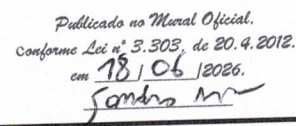 Publicado no Mural Oficial,
conforme Lei nº 3.303, de 20.4.2012.
em 18 / 06 /2026.